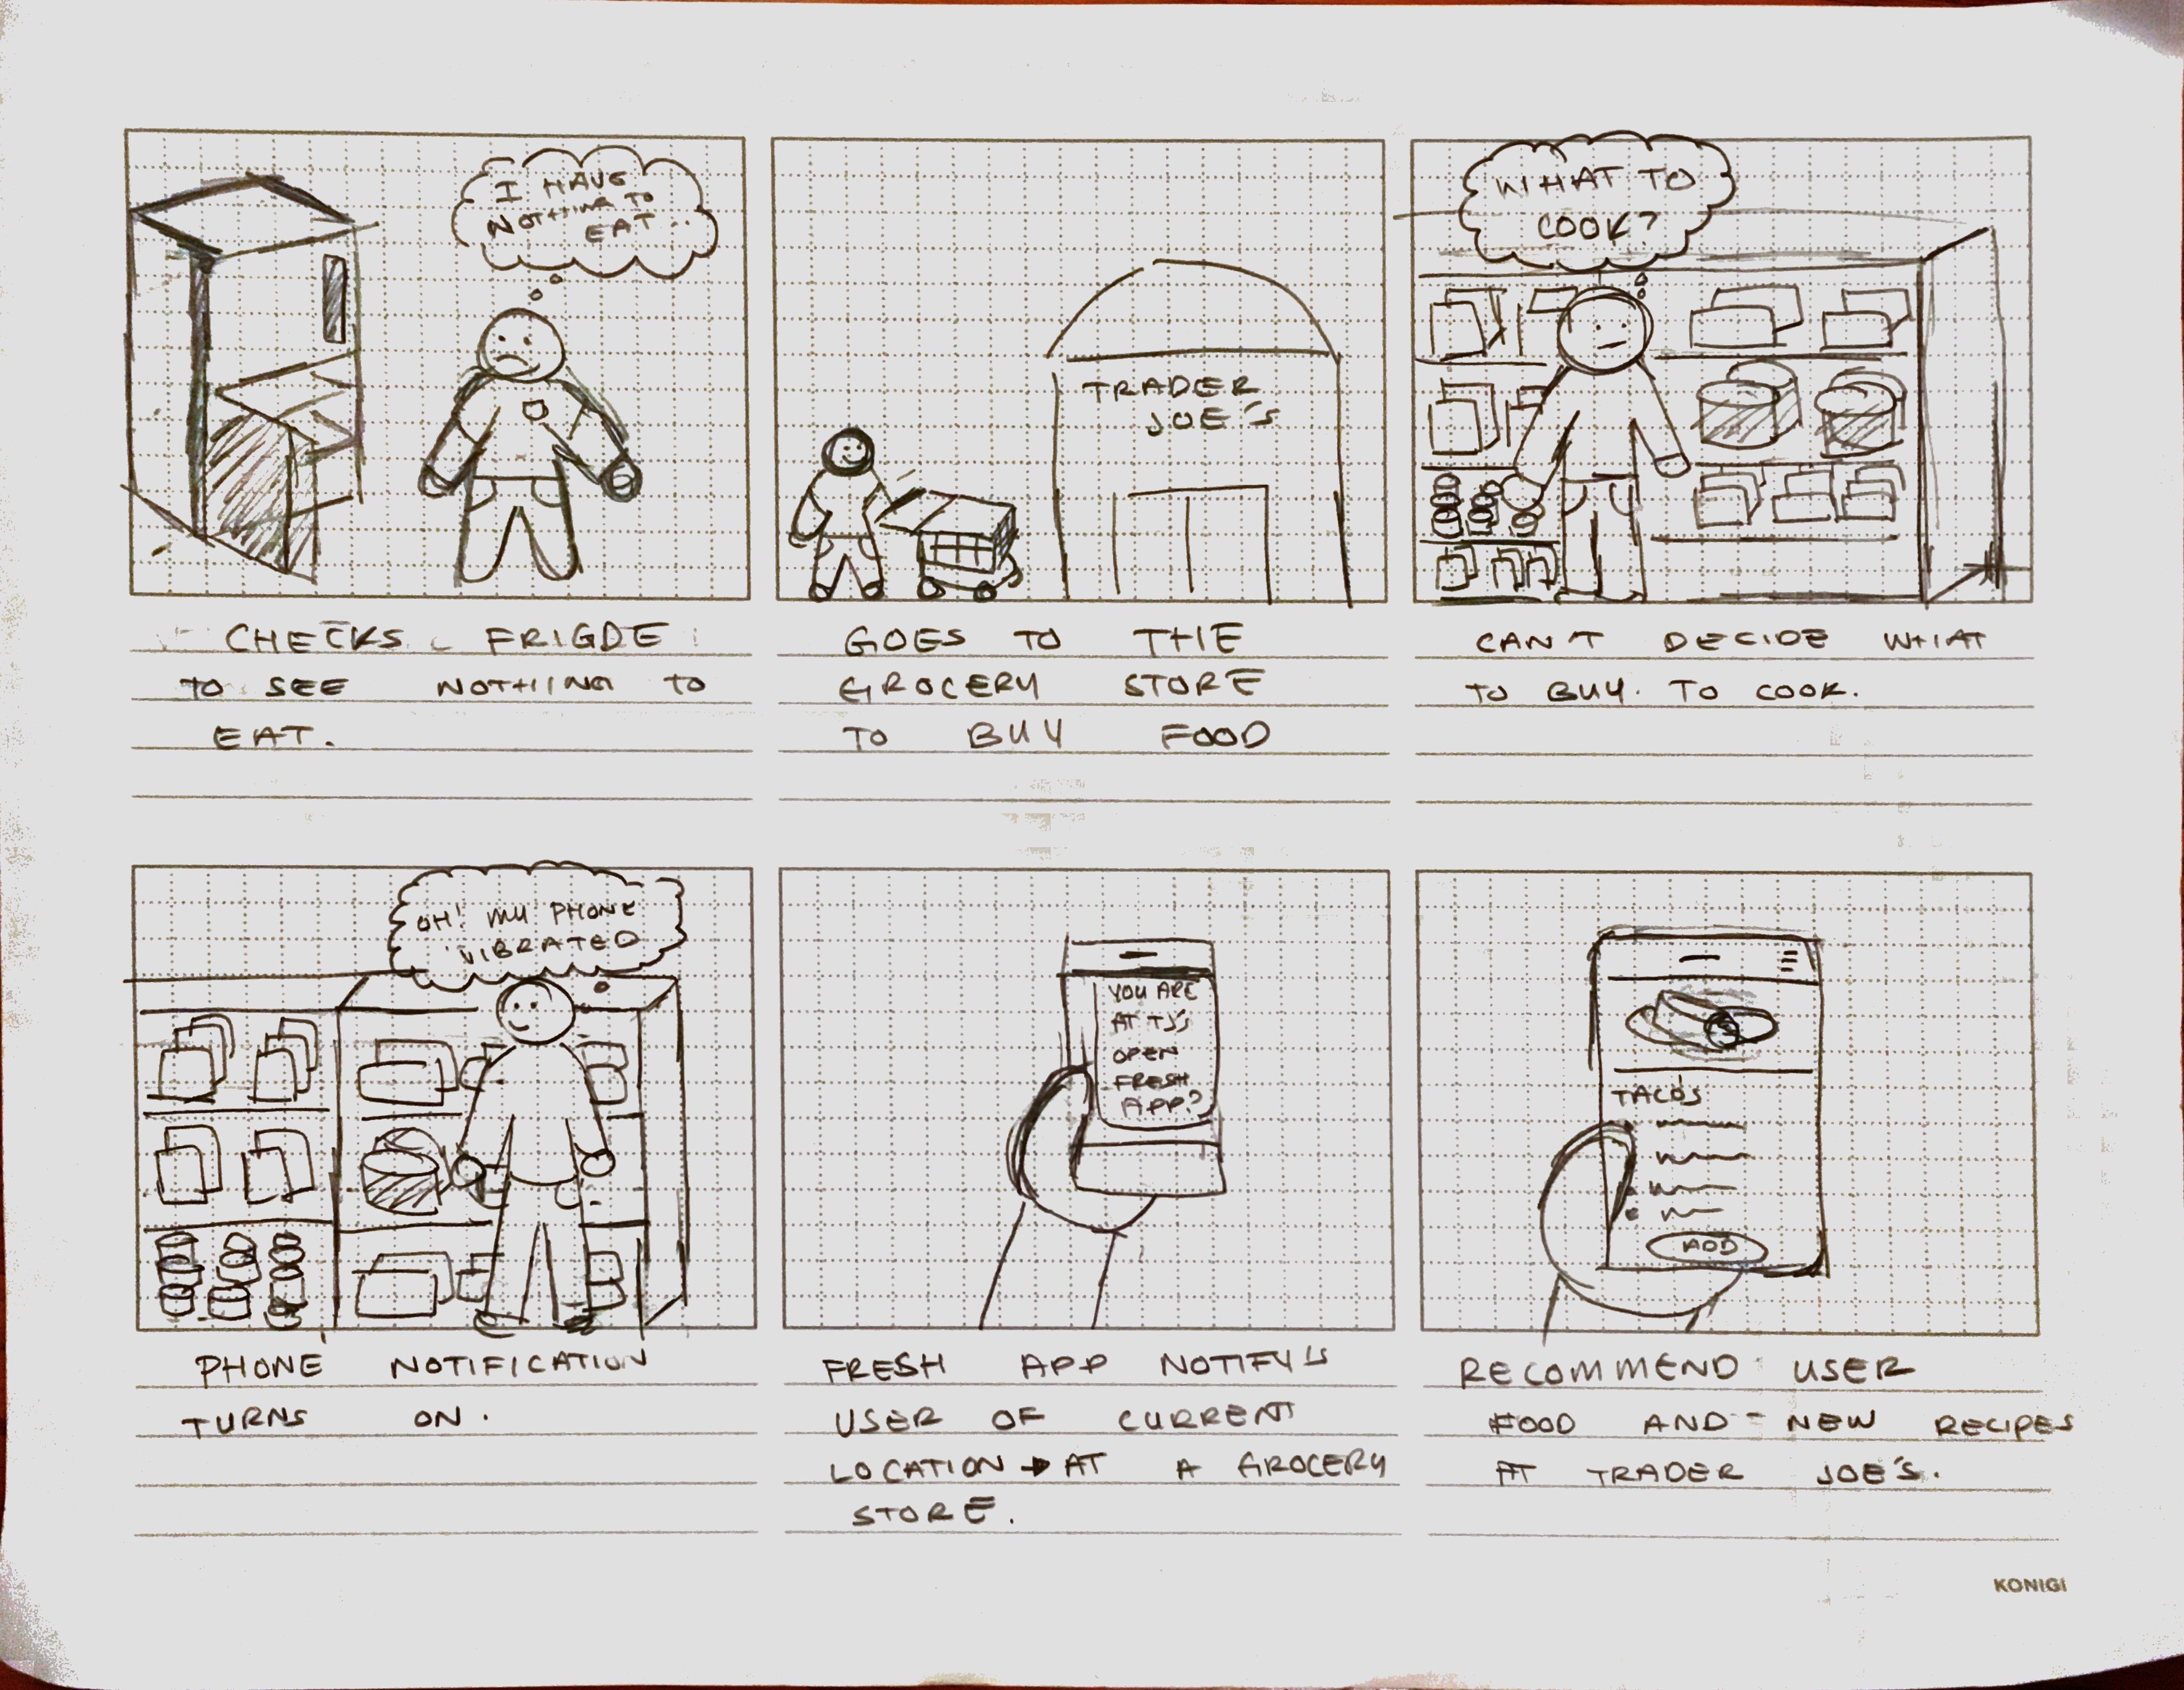 I HAVE
NOTHING TO
EAT..
CHECKS FRIGDE
TO SEE NOTHING TO
EAT.
TRADER
JOE'S
GOES TO THE
GROCERY STORE
TO BUY FOOD
WHAT TO
COOK?
CAN'T DECIDE WHAT
TO BUY. TO COOK.
OH! MY PHONE
VIBRATED
PHONE NOTIFICATION
TURNS ON.
YOU ARE
AT TJ'S
OPEN
FRESH
APP?
FRESH APP NOTIFY'S
USER OF CURRENT
LOCATION → AT A GROCERY
STORE.
TACOS
ADD
RECOMMEND USER
FOOD AND - NEW RECIPES
AT TRADER JOE'S.
KONIGI